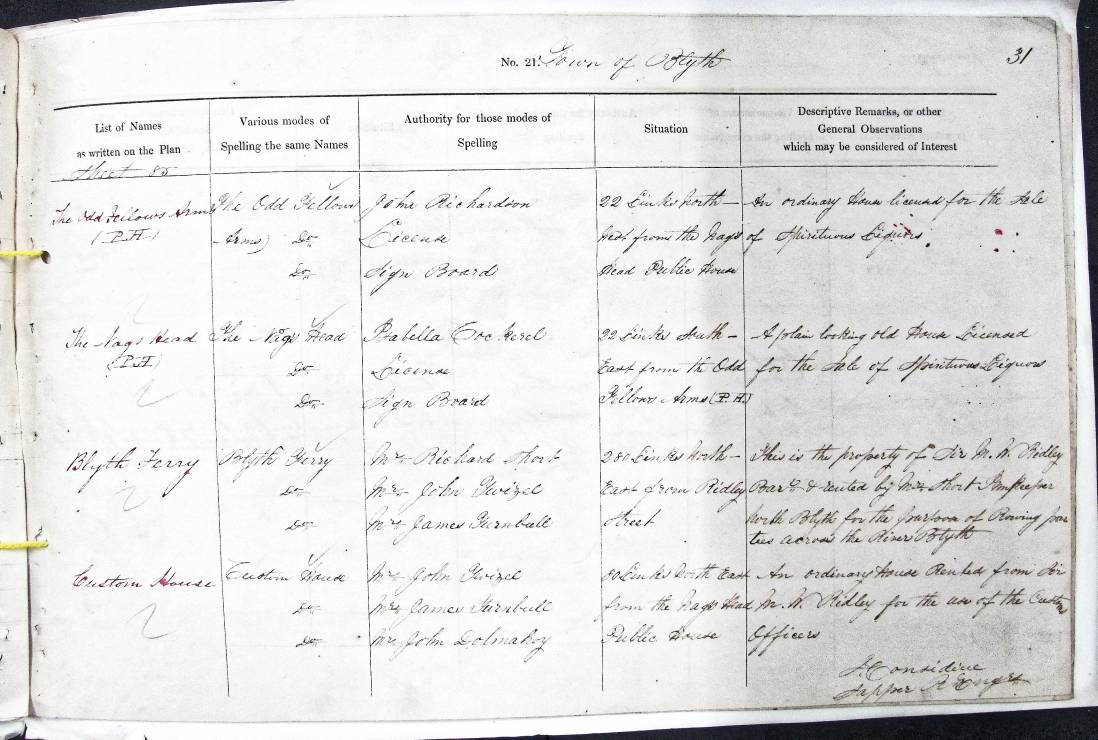 31
No. 21. Town of Blyth
List of Names
as written on the Plan
Various modes of
Spelling the same Names
Authority for those modes of
Spelling
Situation
Descriptive Remarks, or other
General Observations
which may be considered of Interest
Sheet 85
The Odd Fellows Arms The Odd Fellow John Richardson 22 Links North — An ordinary House licensed for the Sale
(P.H.) Arms) Do. License West from the Nags of Spirituous Liquors
Do. Sign Board Head Public House
The Nags Head The Nags Head Isabella Cockerel 22 Links South — A plain looking old House Licensed
(P.H) Do. License East from the Odd for the Sale of Spirituous Liquors
Do. Sign Board Fellows Arms (P.H.)
Blyth Ferry Blyth Ferry Mr. Richard Short 280 Links North — This is the property of Sir M. W. Ridley
Do. Mr. John Twizel East from Ridley Bart. & rented by Mr. Short Innkeeper
Do. Mr. James Turnbull Street North Blyth for the purpose of Rowing par
ties across the River Blyth
Custom House Custom House Mr. John Twizel 80 Links North East An ordinary House Rented from Sir
Do. Mr. James Turnbull from the Nags Head M. W. Ridley for the use of the Custom
Do. Mr. John Dolmahoy Public House Officers
J. Considine
Sapper R Engrs